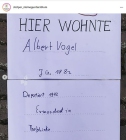 HIER WOHNTE
Albert Vogel
JG. 1872
Deportiert 1942
Ermordet in
Treblinka